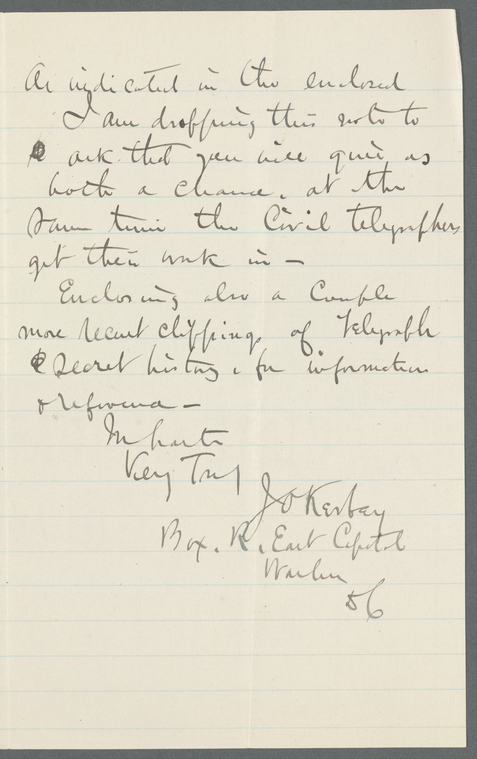 As indicated in the enclosed
I am dropping this note to
ask that you will give us
both a chance, at the
same time the Civil telegraphers
get their work in —
Enclosing also a Couple
more recent clippings of Telegraph
& Secret history, for information
& reference —
In haste
Very Truly
J O Kerbey
Box. R. East Capitol
Washn
DC